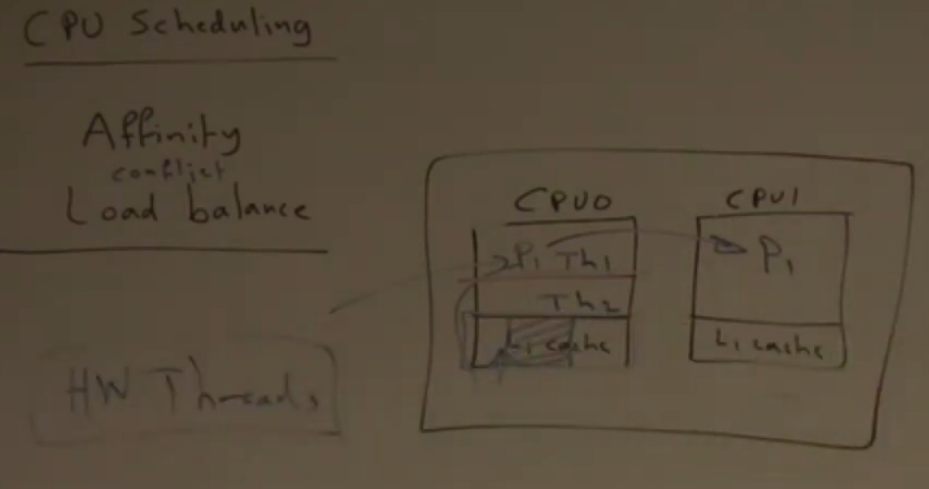 CPU Scheduling
Affinity
conflict
Load balance
HW Threads
CPU0
P1 Th1
Th2
L1 cache
CPU1
P1
L1 cache